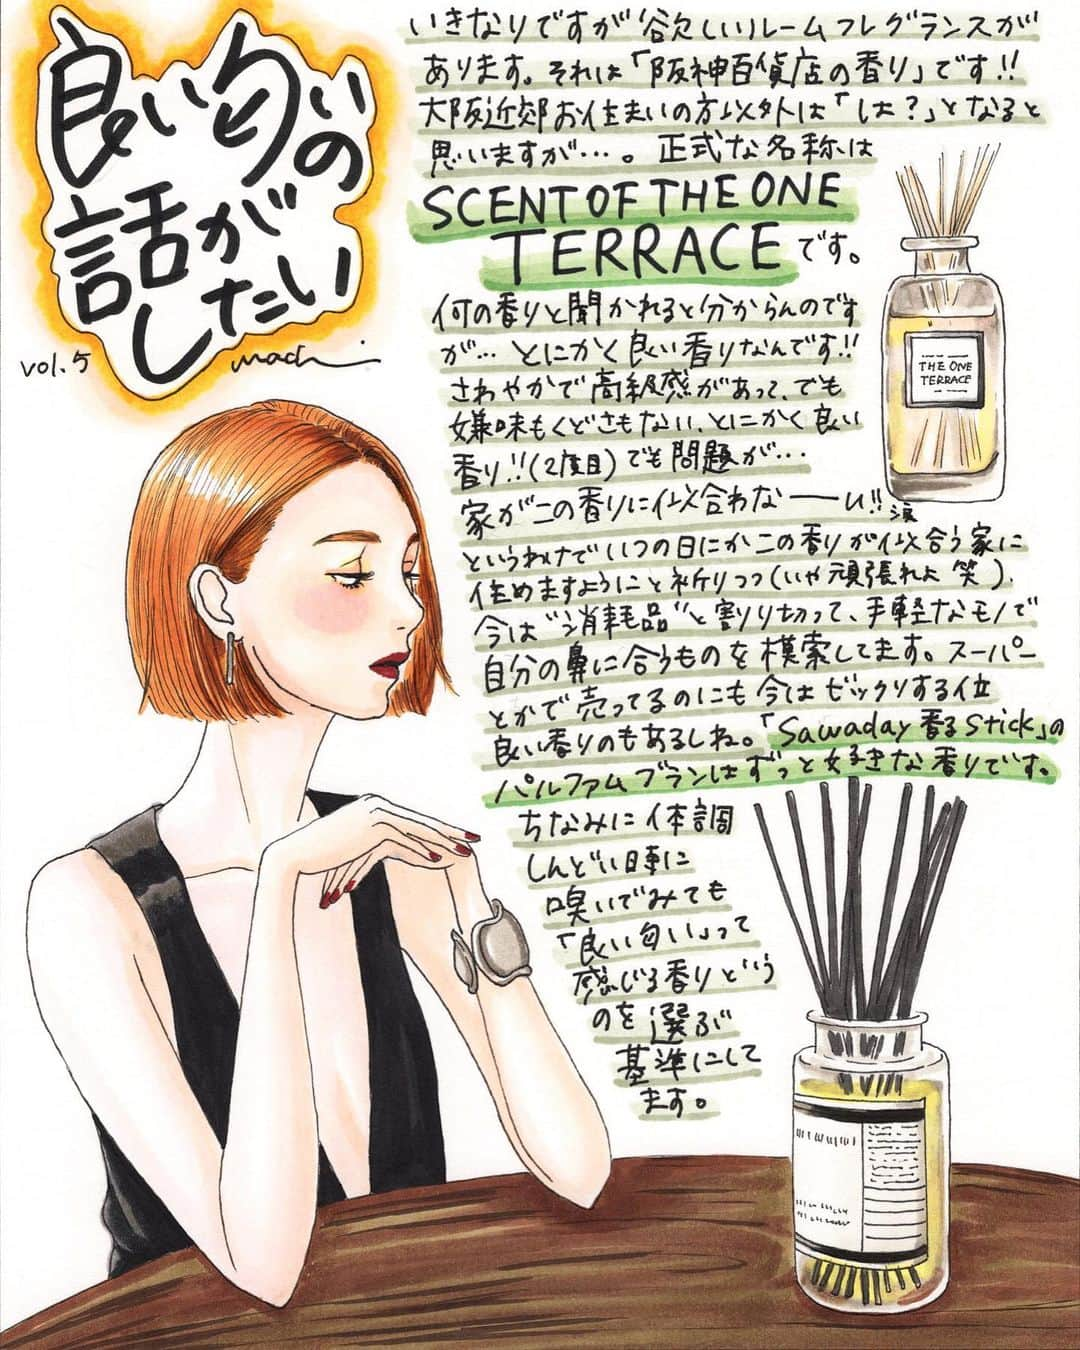 良い匂いの
話が
したい
vol.5 machi
いきなりですが欲しいルームフレグランスが
あります。それは「阪神百貨店の香り」です!!
大阪近郊お住まいの方以外は「は?」となると
思いますが…。正式な名称は
SCENT OF THE ONE
TERRACEです。
何の香りと聞かれると分からんのです
が…とにかく良い香りなんです!!
さわやかで高級感があって、でも
嫌味もくどさもない、とにかく良い
香り!!(2度目)でも問題が…
家がこの香りに似合わなーい!!涙
というわけでいつの日にかこの香りが似合う家に
住めますようにと祈りつつ(いや頑張れよ 笑)、
今は"消耗品"と割り切って、手軽なモノで
自分の鼻に合うものを模索してます。スーパー
とかで売ってるのにも今はビックリする位
良い香りのもあるしね。「Sawaday香るStick」の
パルファムブランはずっと好きな香りです。
ちなみに体調
しんどい時に
嗅いでみても
「良い匂い」って
感じる香りという
のを選ぶ
基準にして
ます。
THE ONE
TERRACE